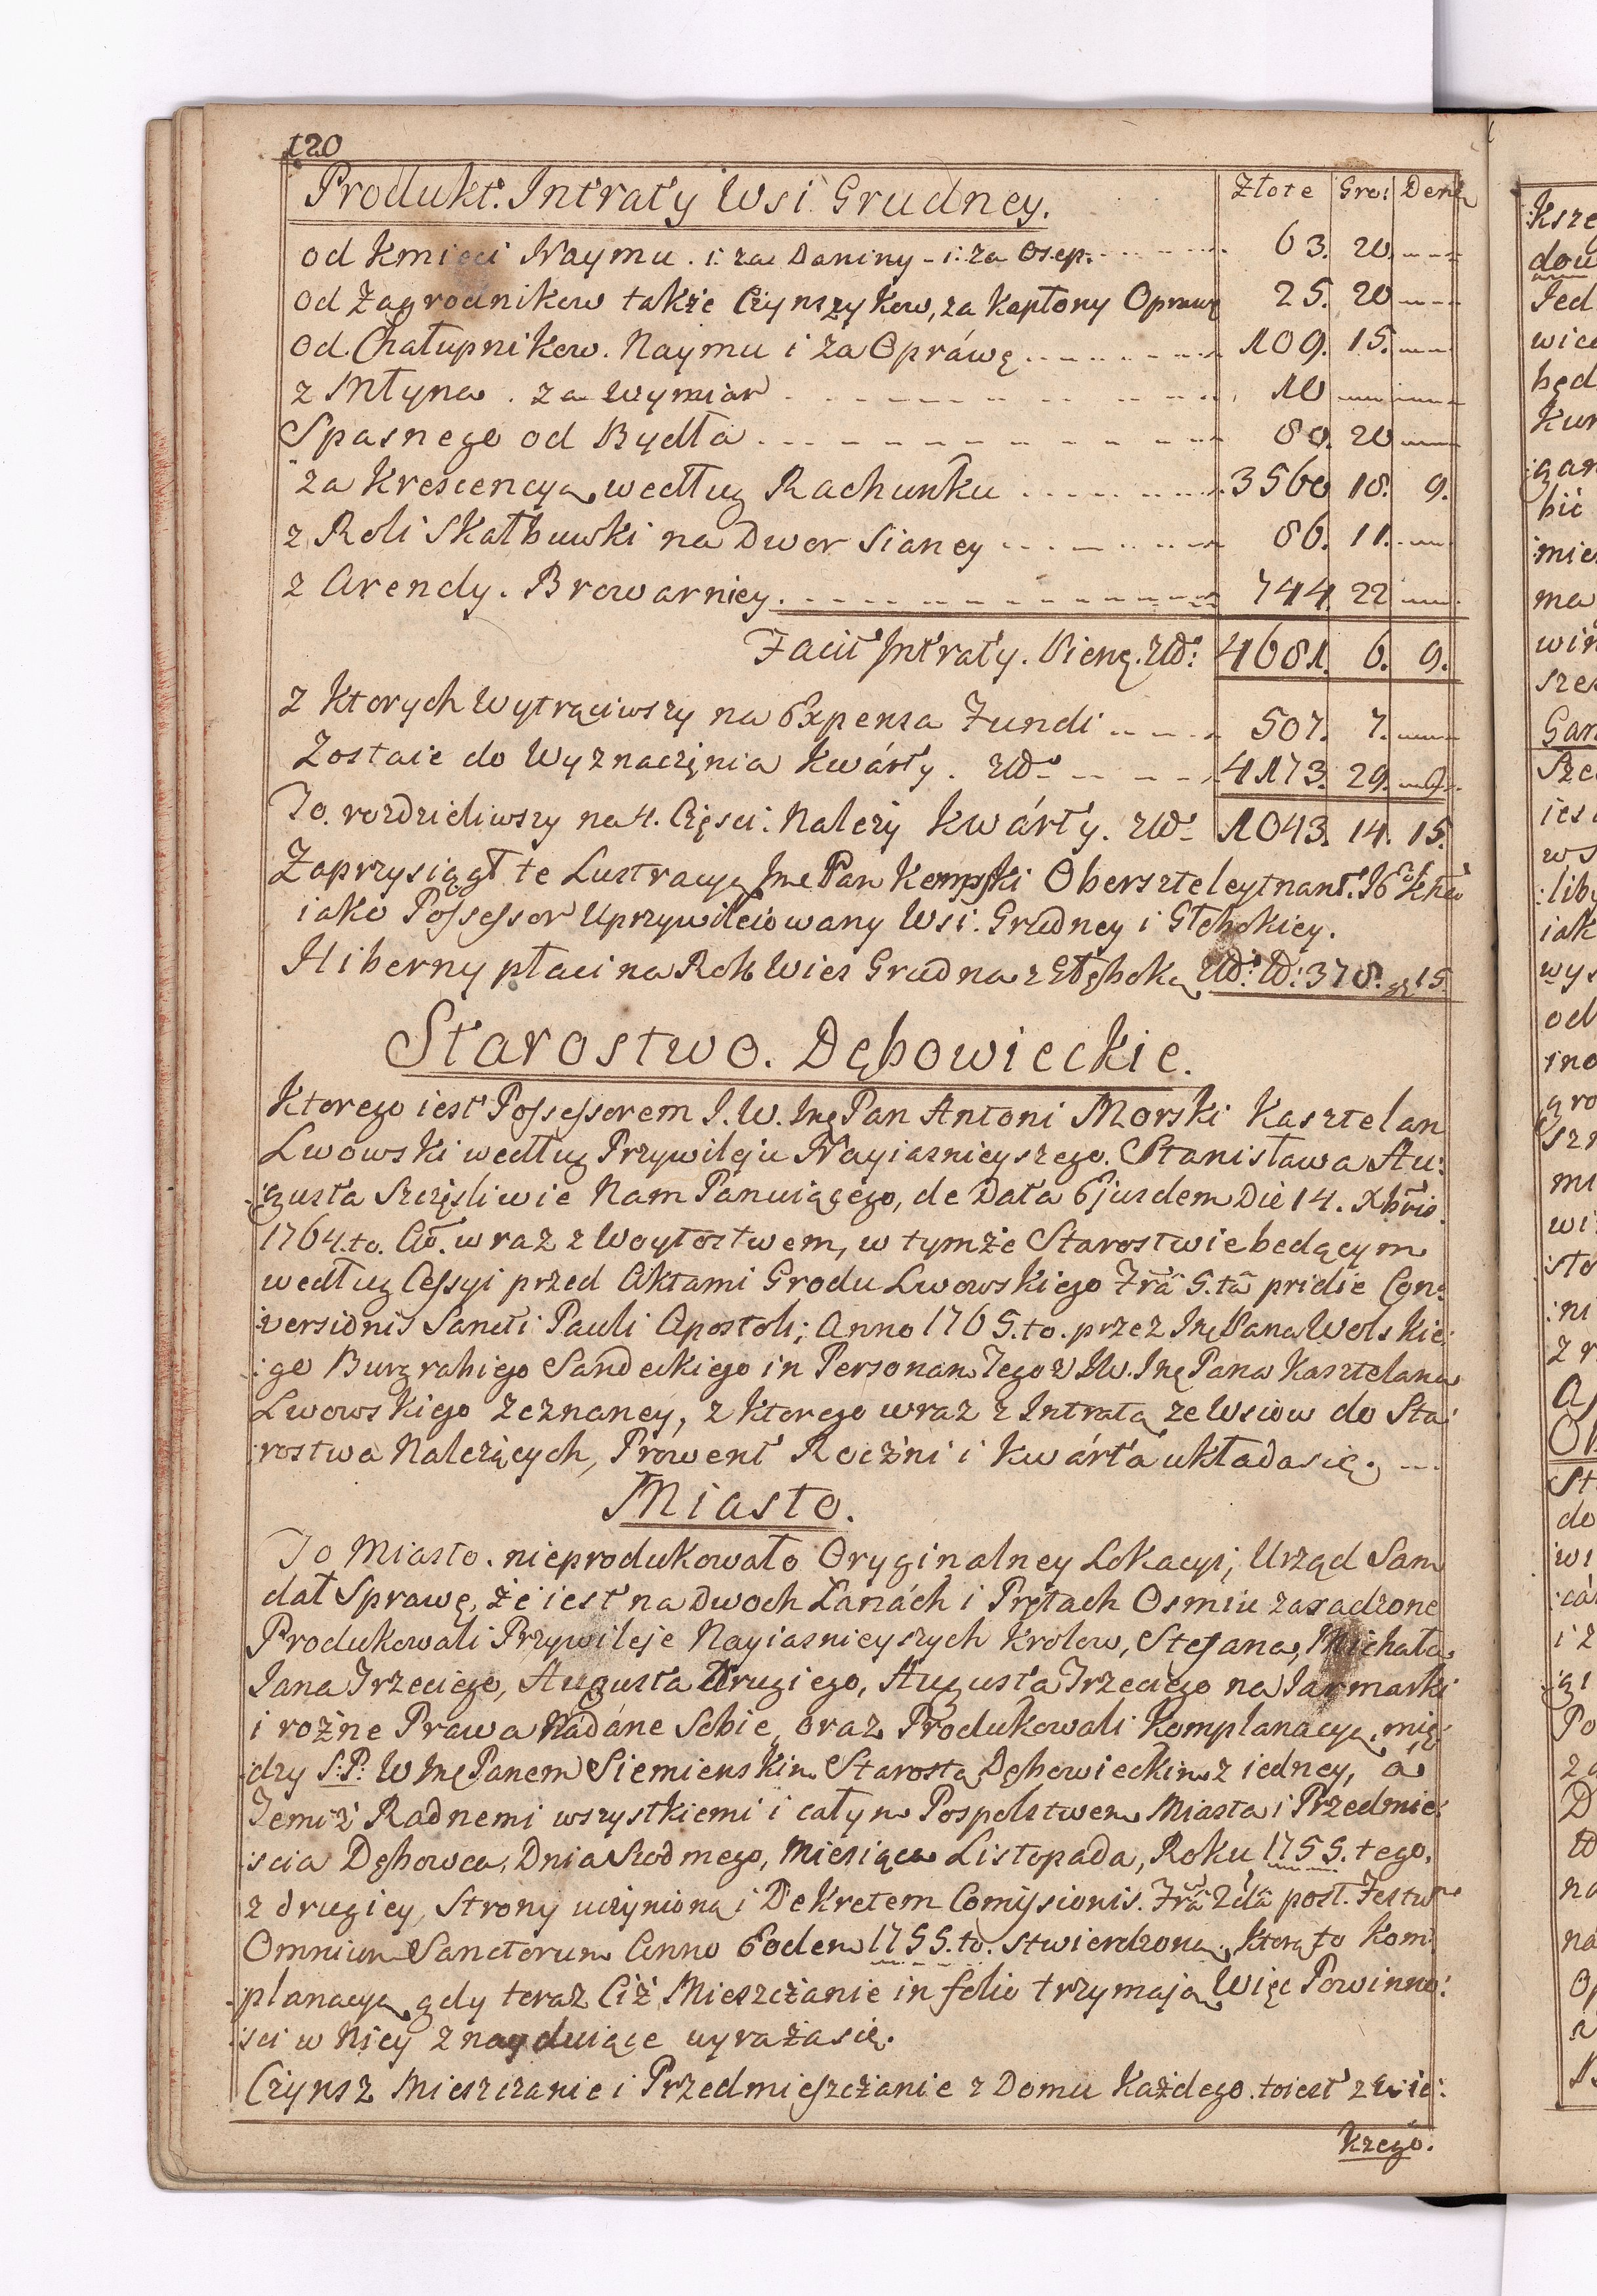 120
Produkt. Intraty Wsi Grudney. Złote Gro: Den:
od Kmieci Naymu. i za Daniny - i: za Osep. 63. 20.
od Zagrodnikow także Czynszykow, za Kapłony Oprawę 25. 20
od Chałupnikow. Naymu i za Opráwę 109. 15.
z Młyna. za wymiar 10
Spasnego od Bydła 80. 20
za Krescencyą według Rachunku 3560 18. 9.
z Roli Skałbuwski na Dwor Sianey 86. 11.
z Arendy. Browarniey 744. 22
Facit Intraty. Pienę. Zło: 4681. 6. 9.
z Ktorych Wytrąciwszy na Expensa Fundi 507. 7.
Zostaie do Wyznaczęnia Kwárty. Zło 4173. 29. 9.
To. rozdzieliwszy na 4. Części: Należy Kwárty. Zło 1043. 14. 15.
Zaprzysiągł te Lustracyą Jmć Pan Kempski Oberszteleytnant.
iako Possessor Uprzywileiowany Wsi. Grudney i Głębokiey.
Hiberny płaci na Rok Wies Grudna z Głęboką 378. gr 15.
Starostwo. Dębowieckie.
Ktorego iest Possessorem J.W. Jmć Pan Antoni Morski Kasztelan
Lwowski według Przywileju Nayiasnieyszego. Stanisława Au:
:gusta Szczęsliwie Nam Panuiącego, de Data Ejusdem Die 14. Xbris
1764.to. wraz z Woytostwem, w tymże Starostwie bedącym
według Cessyi przed Aktami Grodu Lwowskiego Fra 5.ta pridie Con:
:versionis Sancti Pauli Apostoli; Anno 1765.to. przez Jmć Pana Wolskie:
:go Burgrabiego Sandeckiego in Personam Tegoż JW. Jmć Pana Kasztelana
Lwowskiego zeznaney, z Ktorego wraz z Intratą ze Wsiow do Sta:
:rostwa Należących, Prowent Roczni i Kwárta układasię.
Miasto.
To Miasto. nieprodukowało Oryginalney Lokacyi, Urząd Sam
dał Sprawę, że iest na Dwoch Łanách i Prętach Osmiu zasadzone
Produkowali Przywileje Nayiasnieyszych Krolow, Stefana, Michała,
Jana Trzeciego, Augusta Drugiego, Augusta Trzeciego na Jarmarki
i rożne Prawa Nadáne Sobie, oraz Produkowali Komplanacyą mię:
:dzy S.P. W Jmć Panem Siemienskim Starostą Dębowieckim z iedney, á
Temiż Radnemi wszystkiemi i całym Pospolstwem Miasta i Przedmie:
:scia Dębowca, Dnia Siodmego, Miesiąca Listopada, Roku 1755.tego,
z drugiey Strony uczynioną i Dekretem Comissionis. Fra 2da post. Festum
Omnium Sanctorum Anno Eodem 1755.to. stwierdzoną, Ktorą to Kom:
:planacyą gdy teraz Ciż Mieszczanie in folio trzymają Więc Powinno:
:sci w Niey znayduiące wyrażasię.
Czynsz Mieszczanie i Przedmieszczanie z Domu Każdego. toiest z Wię:
kzego.